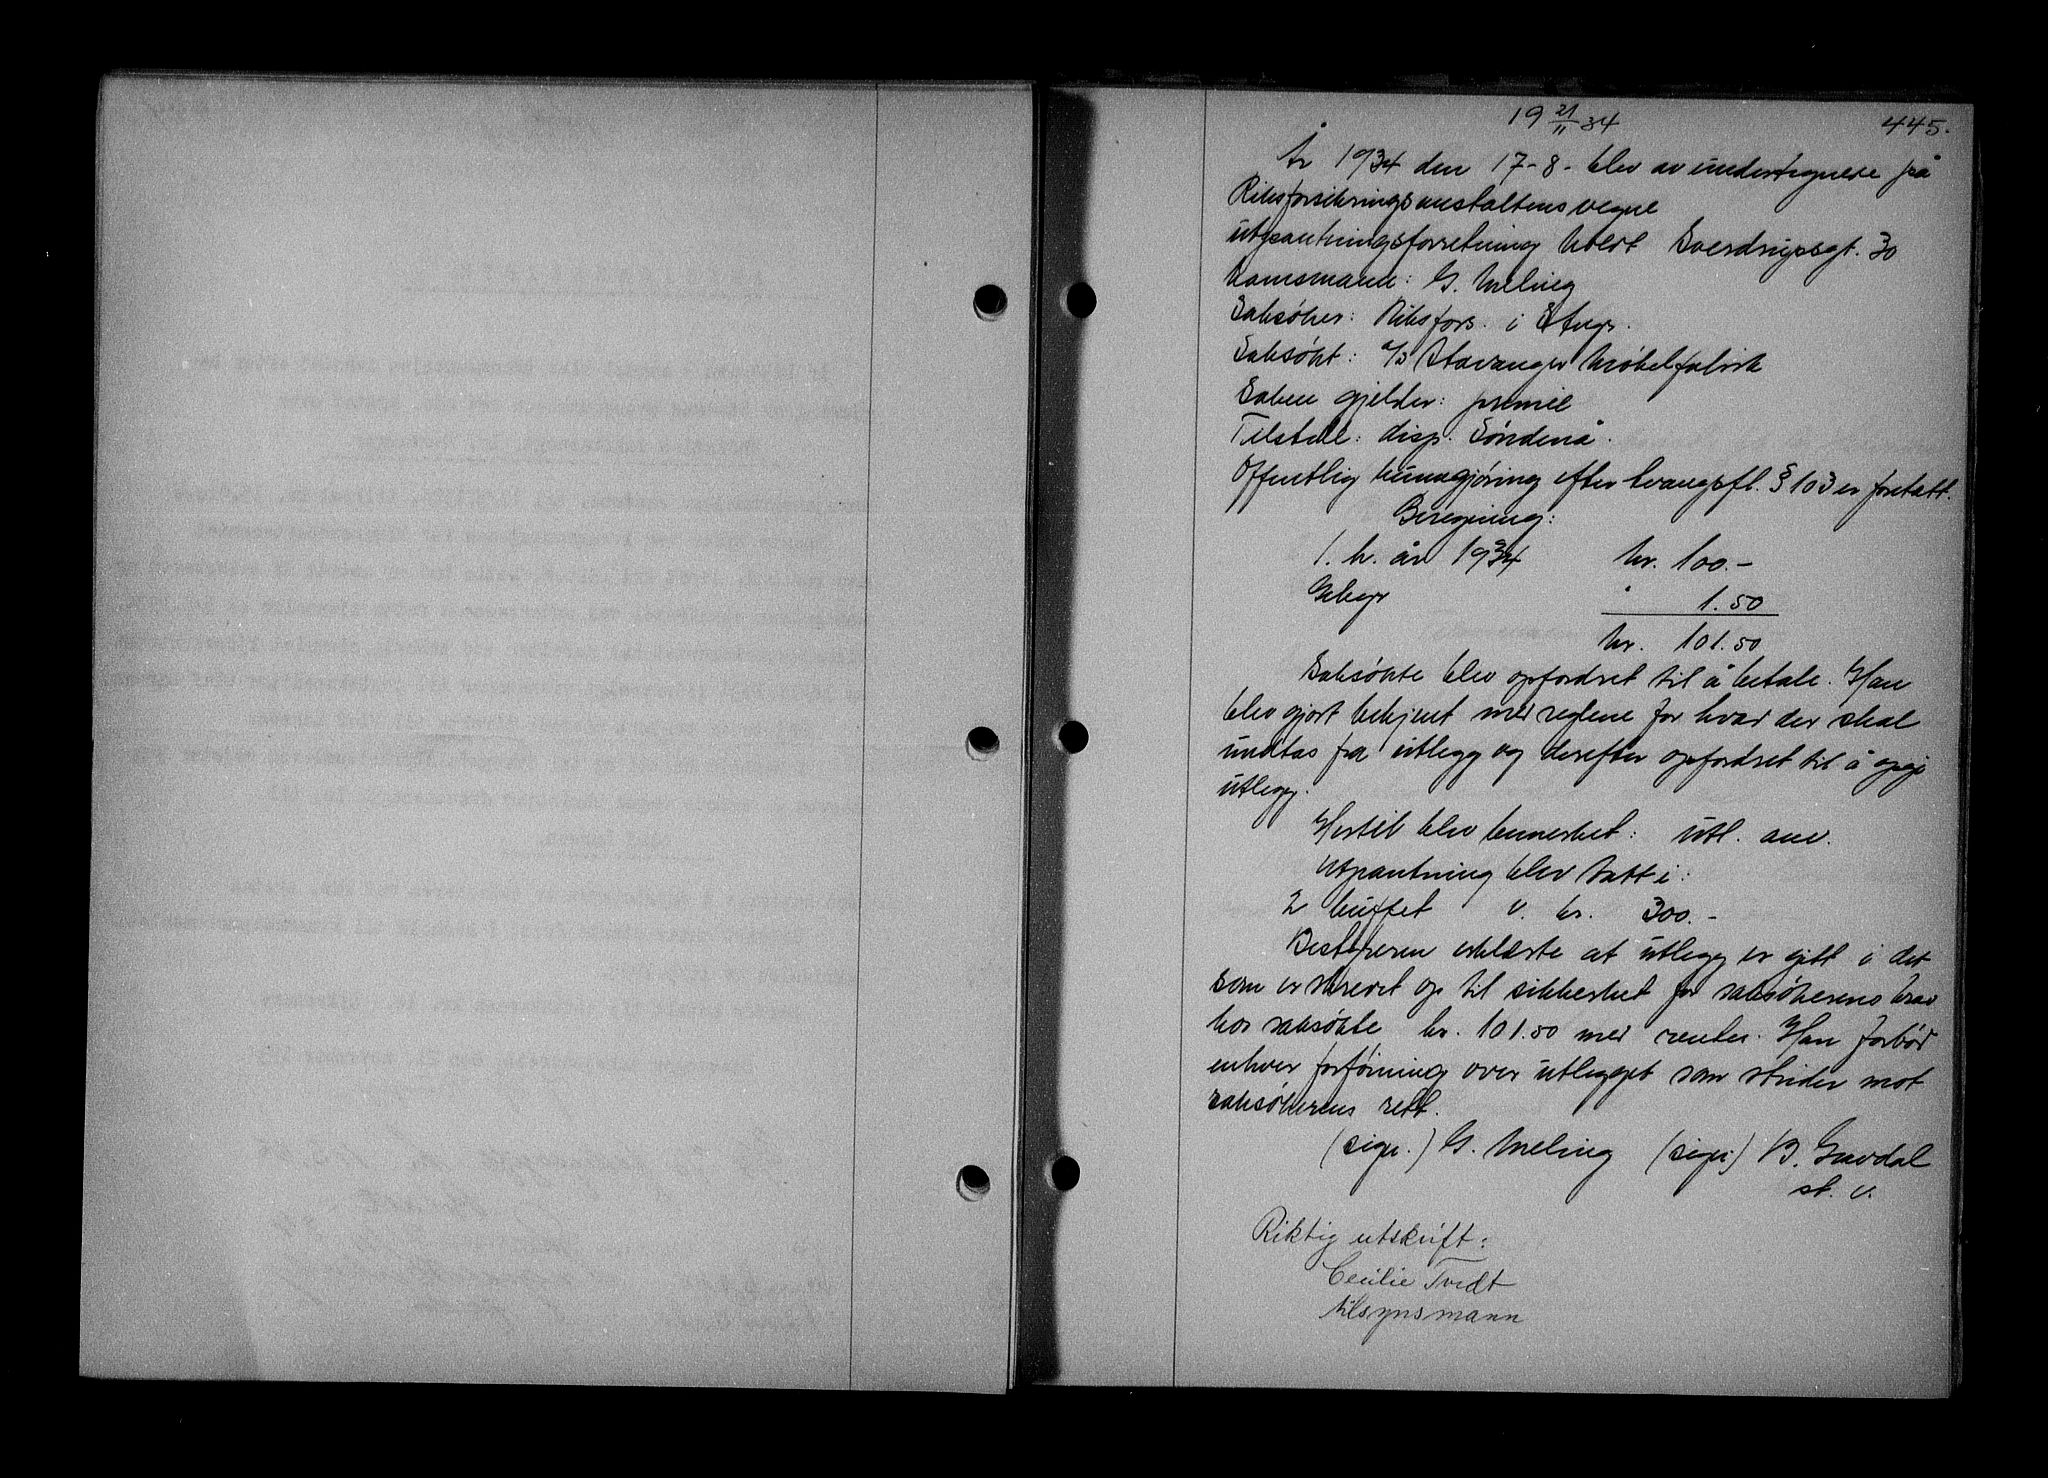 19 21/11 34
445.
År 1934 den 17-8- blev av undertegnede på
Riksforsikringsanstaltens vegne
utpantningsforretning holdt Sverdrupsgt. 30
Navnsmann: G. Meling
Saksøker: Riksfors. i Stvgr.
Saksøkt: a/s Stavanger Møbelfabrik
Saken gjelder: premie
Tilstede: disp. Søndenå.
Offentlig kunngjøring efter tvangsfl. § 103 er foretatt.
Beregning:
1. h. år 1934 kr. 100.-
Gebyr " 1.50
kr. 101.50
Saksøkte blev opfordret til å betale. Han
blev gjort bekjent med reglene for hvad der skal
undtas fra utlegg og derefter opfordret til å opgi
utlegg.
Hertil blev bemerket: utl. anv.
Utpantning blev tatt i:
2 buffet v. kr. 300.-
Bestyreren erklærte at utlegg er gitt i det
som er skrevet op til sikkerhet for saksøkerens krav
hos saksøkte kr. 101.50 med renter. Han forbød
enhver forføining over utlegget som strider mot
saksøkerens rett.
(sign.) G. Meling (sign.) B.
st. v.
Riktig utskrift:
Cecilie Tvedt
tilsynsmann